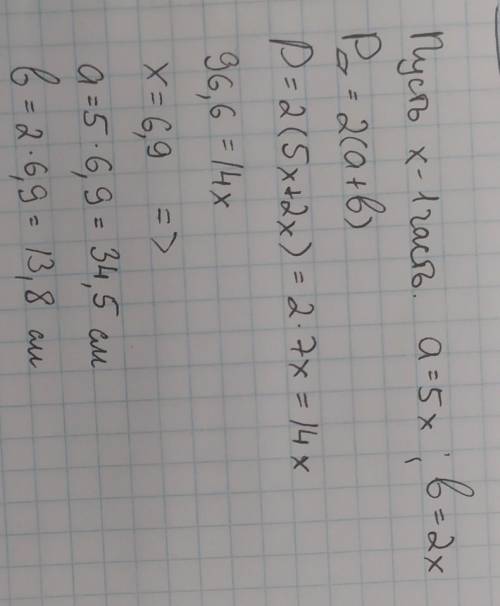 Пусть x - 1 часть. a = 5x ; b = 2x
P▱ = 2(a+b)
P = 2(5x+2x) = 2·7x = 14x
96,6 = 14x
x = 6,9 =>
a = 5·6,9 = 34,5 см
b = 2·6,9 = 13,8 см